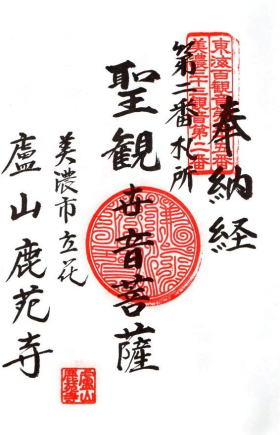 奉納経
東海百観音
美濃三十三観音第二番
第二番札所
聖観世音菩薩
美濃市立花
廬山鹿苑寺